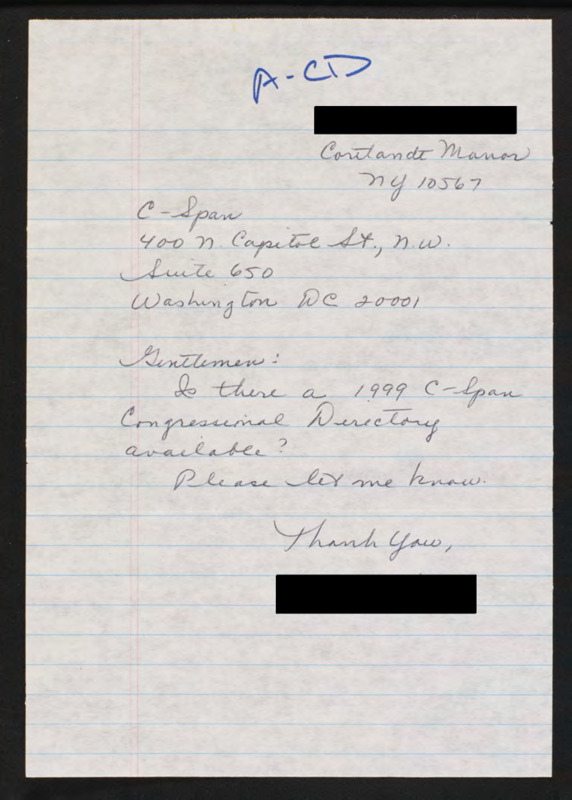 A-CD
Cortlandt Manor
NY 10567
C-Span
400 N. Capitol St., N.W.
Suite 650
Washington DC 20001
Gentlemen:
Is there a 1999 C-Span
Congressional Directory
available?
Please let me know.
Thank You,